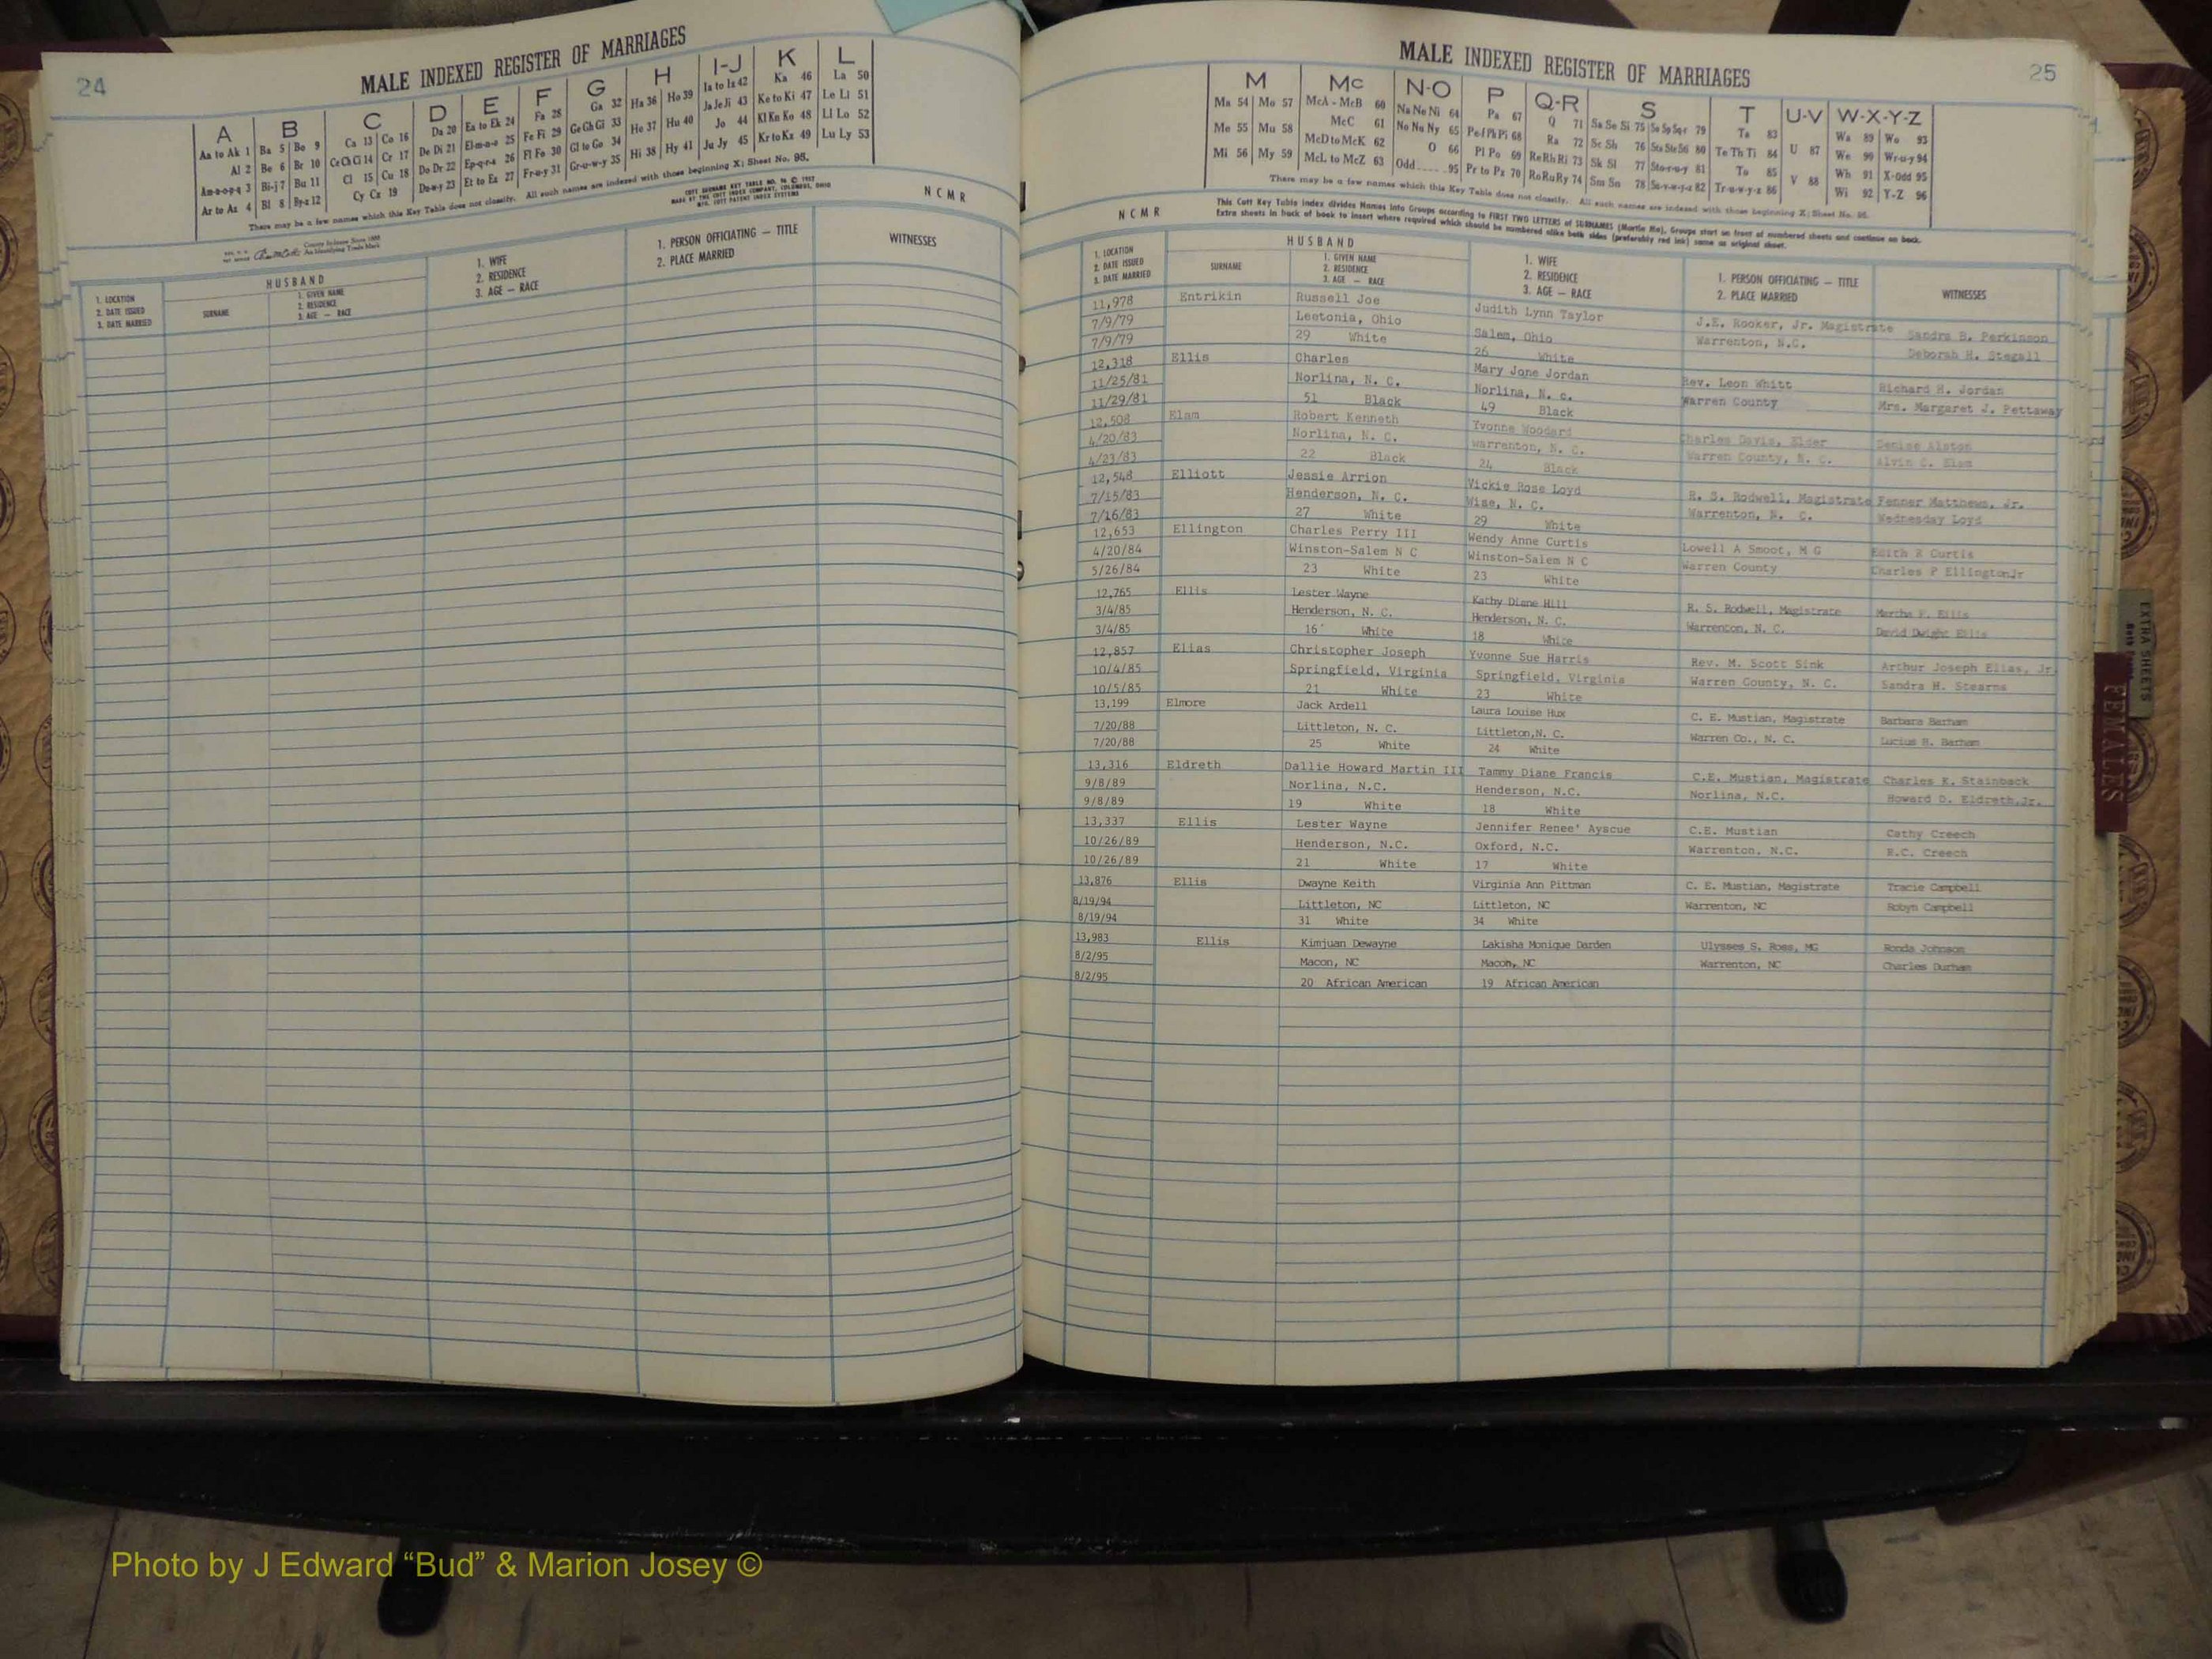 24
MALE INDEXED REGISTER OF MARRIAGES
A B C D E F G H I-J K L
Aa to Ak 1 Ba 5 Bo 9 Ca 13 Co 16 Da 20 Ea to Ek 24 Fa 28 Ga 32 Ha 36 Ho 39 Ia to Iz 42 Ka 46 La 50
Al 2 Be 6 Br 10 Ce Ch Ci 14 Cr 17 De Di 21 El-m-n-o 25 Fe Fi 29 Ge Gh Gi 33 He 37 Hu 40 Ja Je Ji 43 Ke to Ki 47 Le Li 51
Am-n-o-p-q 3 Bi-j 7 Bu 11 Cl 15 Cu 18 Do Dr 22 Ep-q-r-s 26 Fl Fo 30 Gl to Go 34 Hi 38 Hy 41 Jo 44 Kl Kn Ko 48 Ll Lo 52
Ar to Az 4 Bl 8 By-z 12 Cy Cz 19 Du-w-y 23 Et to Ez 27 Fr-u-y 31 Gr-u-w-y 35 Ju Jy 45 Kr to Kz 49 Lu Ly 53
There may be a few names which this Key Table does not classify. All such names are indexed with those beginning X; Sheet No. 95.
N C M R
HUSBAND
1. LOCATION
2. DATE ISSUED
3. DATE MARRIED
SURNAME
1. GIVEN NAME
2. RESIDENCE
3. AGE — RACE
1. WIFE
2. RESIDENCE
3. AGE — RACE
1. PERSON OFFICIATING — TITLE
2. PLACE MARRIED
WITNESSES
MALE INDEXED REGISTER OF MARRIAGES
25
M Mc N-O P Q-R S T U-V W-X-Y-Z
Ma 54 Mo 57 McA - McB 60 Na Ne Ni 64 Pa 67 Q 71 Sa Se Si 75 So Sp Sq-r 79 Ta 83 Wa 89 Wo 93
Me 55 Mu 58 McC 61 No Nu Ny 65 Pe-f Ph Pi 68 Ra 72 Sc Sh 76 Sta Ste Sti 80 Te Th Ti 84 U 87 We 90 Wr-u-y 94
Mi 56 My 59 McD to McK 62 O 66 Pl Po 69 Re Rh Ri 73 Sk Sl 77 Sto-r-u-y 81 To 85 V 88 Wh 91 X-Odd 95
McL to McZ 63 Odd 95 Pr to Pz 70 Ro Ru Ry 74 Sm Sn 78 Su-v-w-y-z 82 Tr-u-w-y-z 86 Wi 92 Y-Z 96
There may be a few names which this Key Table does not classify. All such names are indexed with those beginning X; Sheet No. 95.
This Cott Key Table Index divides Names into Groups according to FIRST TWO LETTERS of SURNAMES (Martin Ma), Groups start on front of numbered sheets and continue on back.
Extra sheets in back of book to insert where required which should be numbered alike both sides (preferably red ink) same as original sheet.
N C M R
HUSBAND
1. LOCATION
2. DATE ISSUED
3. DATE MARRIED
SURNAME
1. GIVEN NAME
2. RESIDENCE
3. AGE — RACE
1. WIFE
2. RESIDENCE
3. AGE — RACE
1. PERSON OFFICIATING — TITLE
2. PLACE MARRIED
WITNESSES
11,978 Entrikin Russell Joe Judith Lynn Taylor J.E. Rooker, Jr. Magistrate Sandra B. Perkinson
7/9/79 Leetonia, Ohio Salem, Ohio Warrenton, N.C. Deborah H. Stegall
7/9/79 29 White 26 White
12,318 Ellis Charles Mary Jane Jordan Rev. Leon Whitt Richard H. Jordan
11/25/81 Norlina, N. C. Norlina, N. c. Warren County Mrs. Margaret J. Pettaway
11/29/81 51 Black 49 Black
12,508 Elam Robert Kenneth Yvonne Woodard Charles Davis, Elder Denise Alston
4/20/83 Norlina, N. C. Warrenton, N. C. Warren County, N. C. Alvin C. Elam
4/23/83 22 Black 24 Black
12,548 Elliott Jessie Arrion Vickie Rose Loyd R. S. Rodwell, Magistrate Fenner Matthews, Jr.
7/15/83 Henderson, N. C. Wise, N. C. Warrenton, N. C. Wednesday Loyd
7/16/83 27 White 29 White
12,653 Ellington Charles Perry III Wendy Anne Curtis Lowell A Smoot, M G Edith R Curtis
4/20/84 Winston-Salem N C Winston-Salem N C Warren County Charles P EllingtonJr
5/26/84 23 White 23 White
12,765 Ellis Lester Wayne Kathy Diane Hill R. S. Rodwell, Magistrate Martha F. Ellis
3/4/85 Henderson, N. C. Henderson, N. C. Warrenton, N. C. David Dwight Ellis
3/4/85 16 White 18 White
12,857 Elias Christopher Joseph Yvonne Sue Harris Rev. M. Scott Sink Arthur Joseph Elias, Jr.
10/4/85 Springfield, Virginia Springfield, Virginia Warren County, N. C. Sandra H. Stearns
10/5/85 21 White 23 White
13,199 Elmore Jack Ardell Laura Louise Hux C. E. Mustian, Magistrate Barbara Barham
7/20/88 Littleton, N. C. Littleton,N. C. Warren Co., N. C. Lucius H. Barham
7/20/88 25 White 24 White
13,316 Eldreth Dallie Howard Martin III Tammy Diane Francis C.E. Mustian, Magistrate Charles K. Stainback
9/8/89 Norlina, N.C. Henderson, N.C. Norlina, N.C. Howard D. Eldreth,Jr.
9/8/89 19 White 18 White
13,337 Ellis Lester Wayne Jennifer Renee' Ayscue C.E. Mustian Cathy Creech
10/26/89 Henderson, N.C. Oxford, N.C. Warrenton, N.C. R.C. Creech
10/26/89 21 White 17 White
13,876 Ellis Dwayne Keith Virginia Ann Pittman C. E. Mustian, Magistrate Tracie Campbell
8/19/94 Littleton, NC Littleton, NC Warrenton, NC Robyn Campbell
8/19/94 31 White 34 White
13,983 Ellis Kimjuan Dewayne Lakisha Monique Darden Ulysses S. Ross, MG Ronda Johnson
8/2/95 Macon, NC Macon, NC Warrenton, NC Charles Durham
8/2/95 20 African American 19 African American
EXTRA SHEETS
FEMALES
Photo by J Edward “Bud” & Marion Josey ©